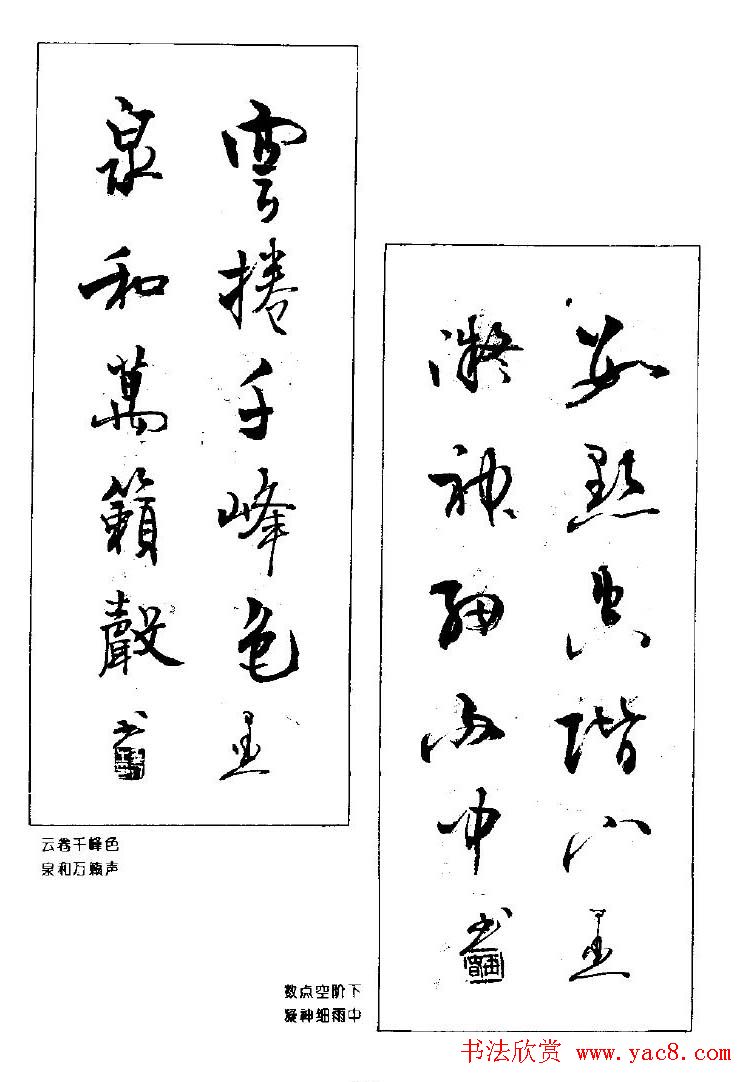 雲捲千峰色
泉和萬籟聲 书
云卷千峰色
泉和万籁声
数點空階下
凝神細雨中 书
数点空阶下
凝神细雨中
书法欣赏 www.yac8.com